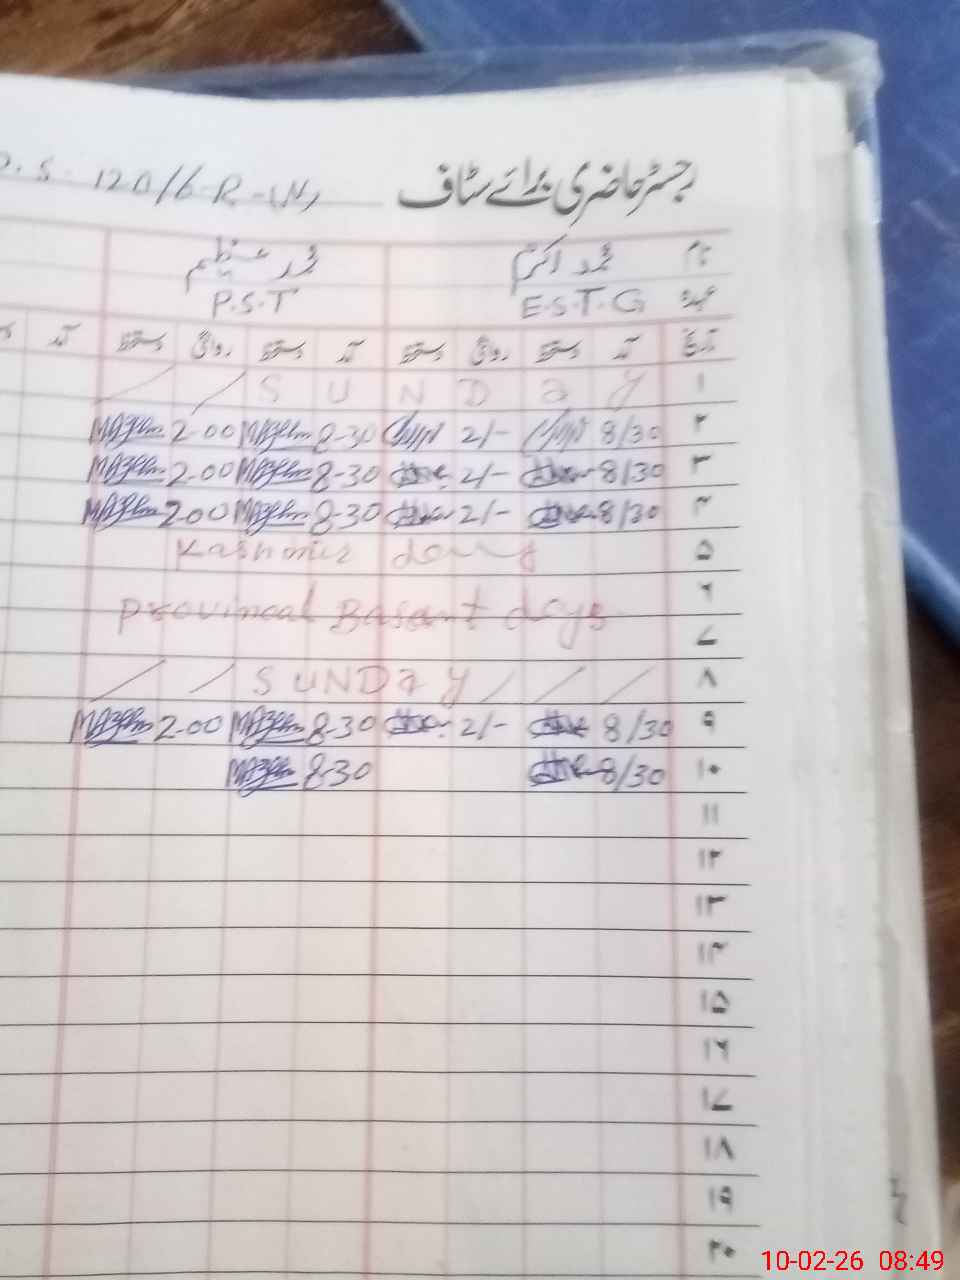 رجسٹر حاضری برائے سٹاف
.S. 120/6-R-(W)
نام محمد اکرم محمد عظیم
عہدہ E.S.T.G P.S.T
تاریخ آمد دستخط روانگی دستخط آمد دستخط روانگی دستخط آمد
۱ SUNDAY
۲ 8/30 2/- 8-30 2-00
۳ 8/30 2/- 8-30 2-00
۴ 8/30 2/- 8-30 2-00
۵ Kashmir day
۶ Provincal Basant days
۷
۸ SUNDAY
۹ 8/30 2/- 8-30 2-00
۱۰ 8/30 8-30
۱۱
۱۲
۱۳
۱۴
۱۵
۱۶
۱۷
۱۸
۱۹
۲۰
10-02-26 08:49